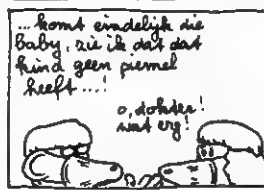 ...komt eindelijk die
baby, zie ik dat dat
kind geen piemel
heeft...!
o, dokter!
wat erg!